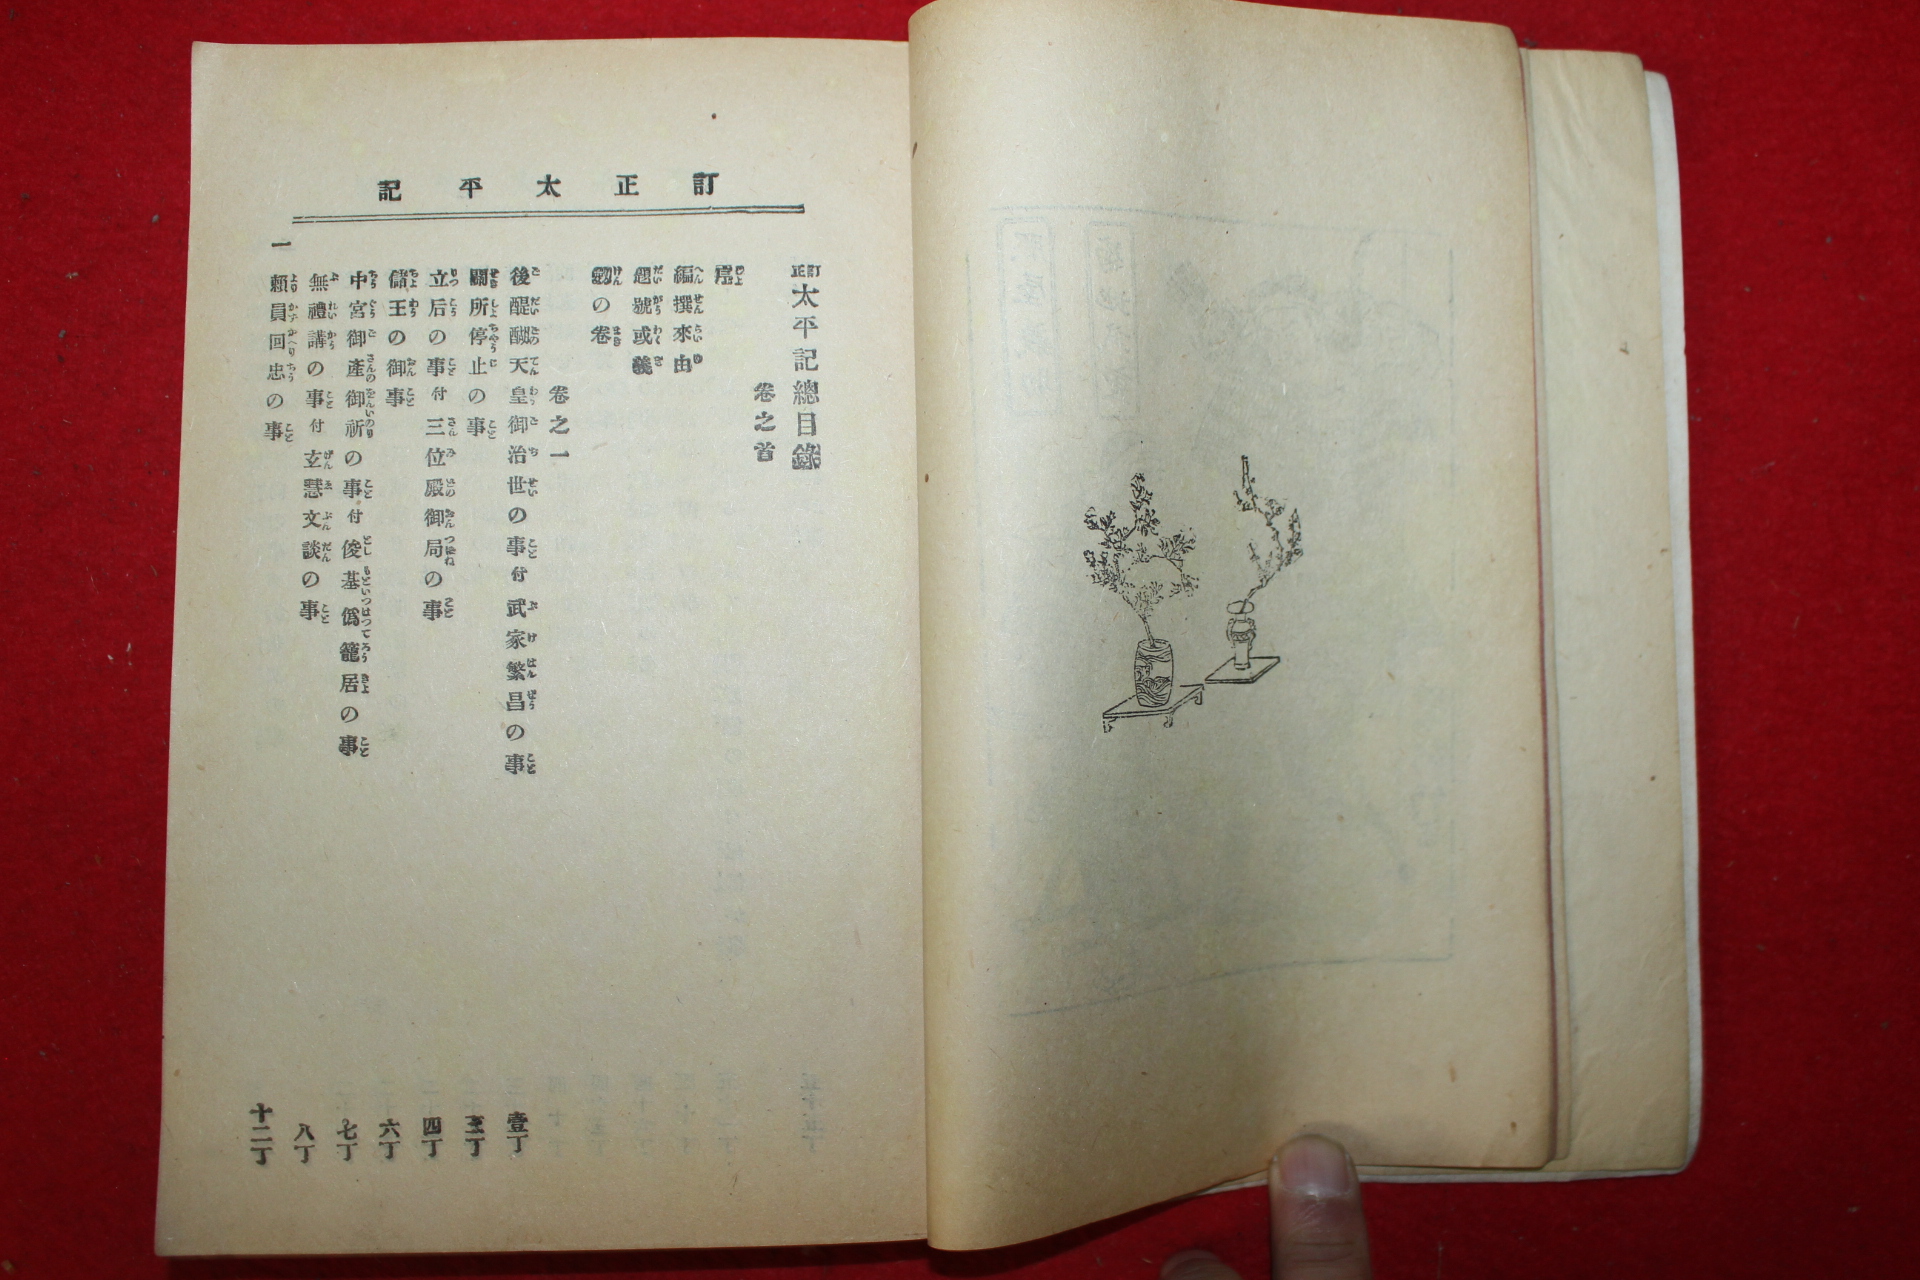 訂正太平記
訂正太平記總目錄
卷之首
序
編撰來由
題號或義
劔の卷
卷之一
後醍醐天皇御治世の事付武家繁昌の事 壹丁
關所停止の事 三丁
立后の事付三位殿御局の事 四丁
儲王の御事 六丁
中宮御產御祈の事付俊基僞籠居の事 七丁
無禮講の事付玄慧文談の事 八丁
賴員回忠の事 十二丁
一